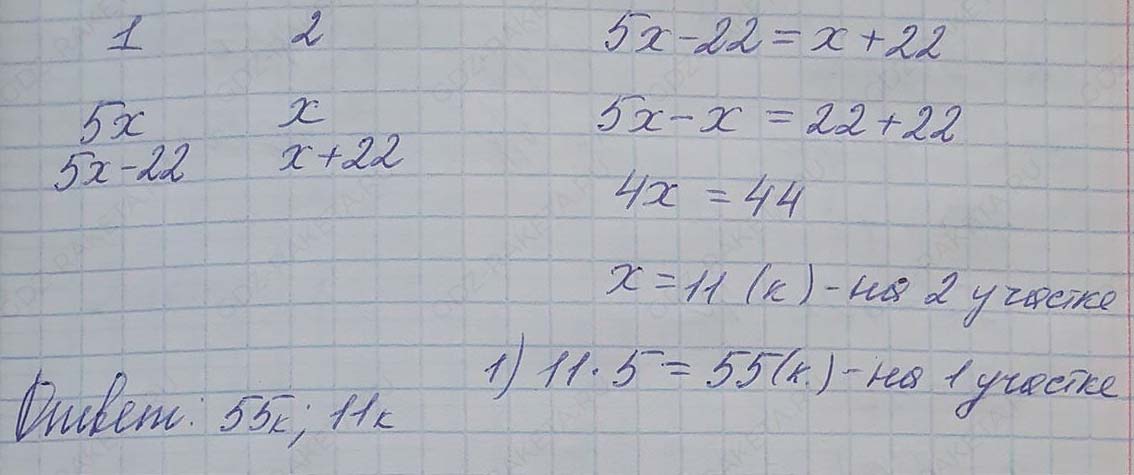 1 2
5x x
5x-22 x+22
5x-22=x+22
5x-x=22+22
4x=44
x=11 (к)-на 2 участке
1) 11·5=55(к.)-на 1 участке
Ответ: 55к; 11к